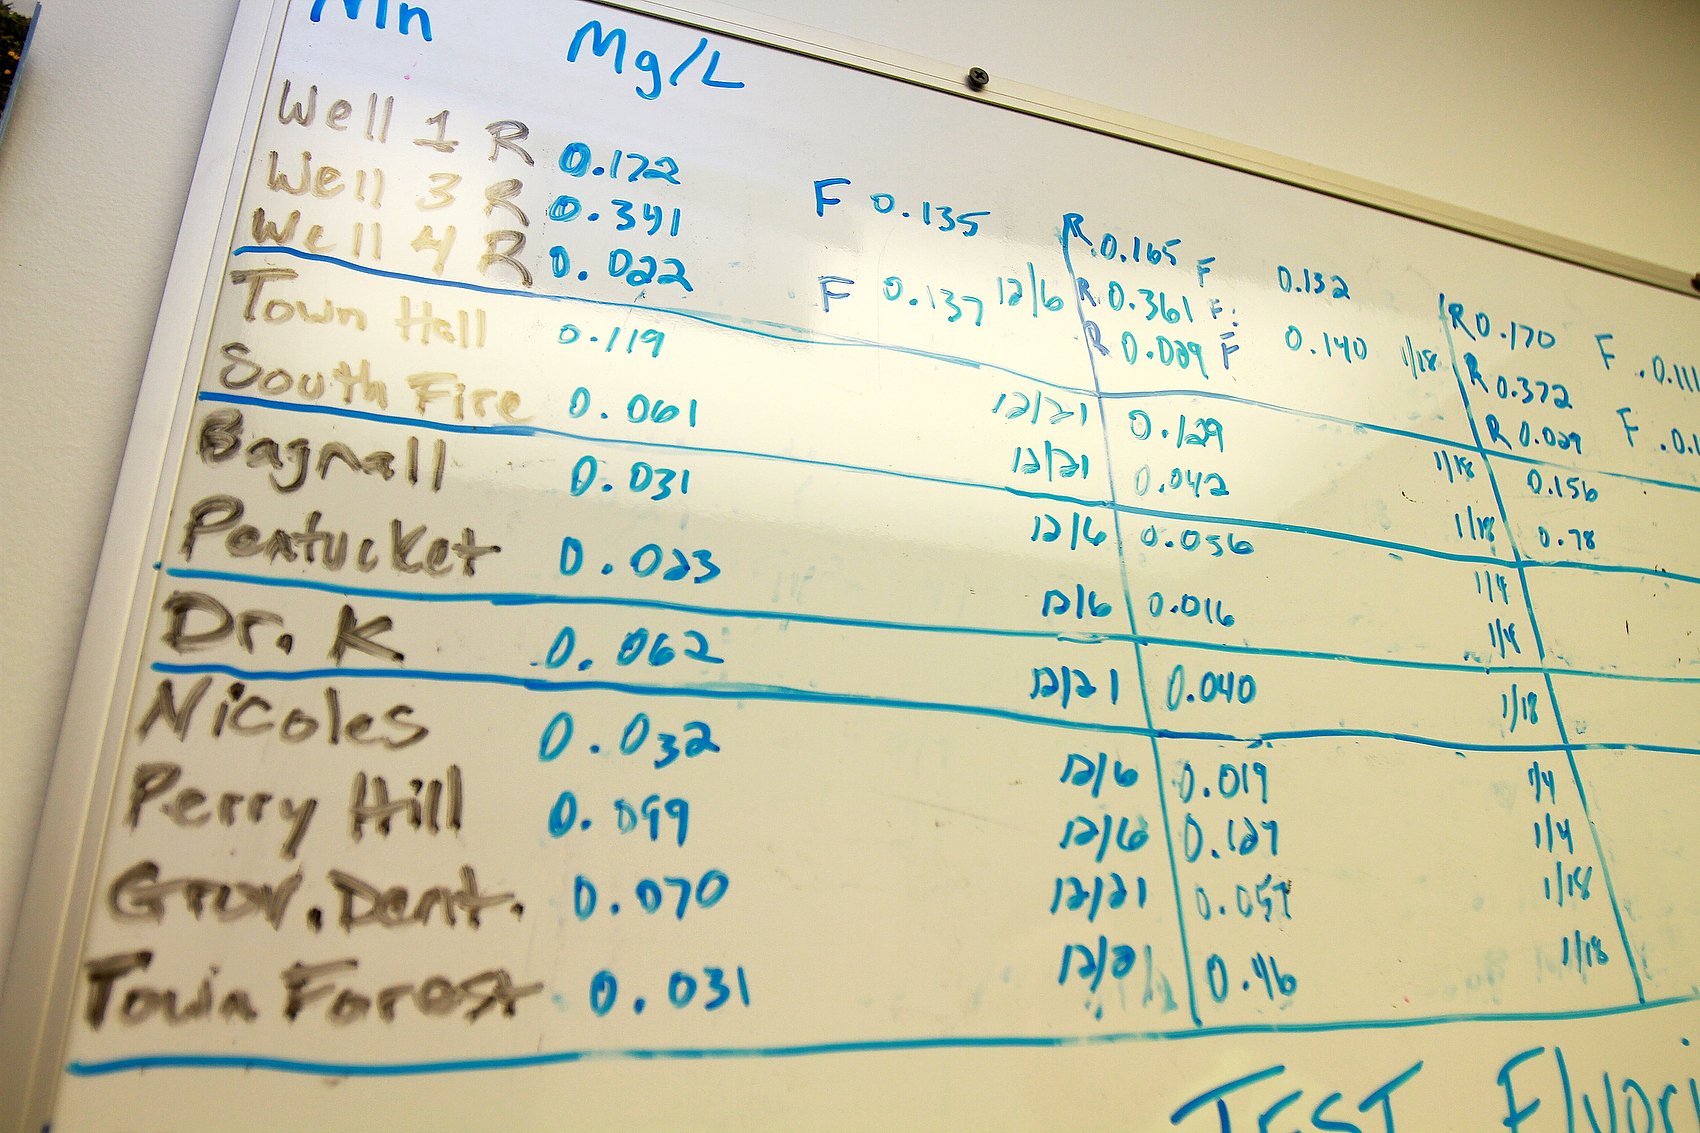 Mn Mg/L
Well 1 R 0.172 F 0.135 R 0.165 F 0.132 R 0.170 F .0.111
Well 3 R 0.341 R 0.361 F: R 0.372
Well 4 R 0.022 F 0.137 12/6 R 0.029 F 0.140 1/18 R 0.029 F .0.1
Town Hall 0.119 12/21 0.129 1/18 0.156
South Fire 0.061 12/21 0.042 1/18 0.78
Bagnall 0.031 12/6 0.056 1/4
Pentucket 0.023 12/6 0.016 1/4
Dr. K 0.062 12/21 0.040 1/18
Nicoles 0.032 12/6 0.019 1/4
Perry Hill 0.099 12/6 0.127 1/4
Grov. Dent. 0.070 12/21 1/18
Town Forest 0.031 12/21 0.46 1/18
TEST Fluori